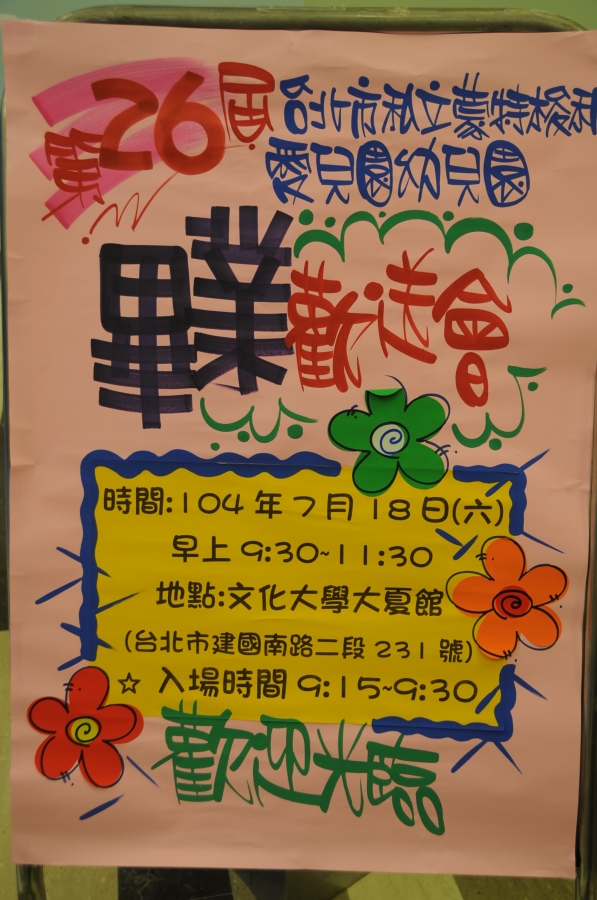 第26屆 台北市私立蒙特梭利
愛兒園幼兒園
畢業歡送會
時間:104年7月18日(六)
早上9:30~11:30
地點:文化大學大夏館
(台北市建國南路二段231號)
☆ 入場時間9:15~9:30
歡迎來臨